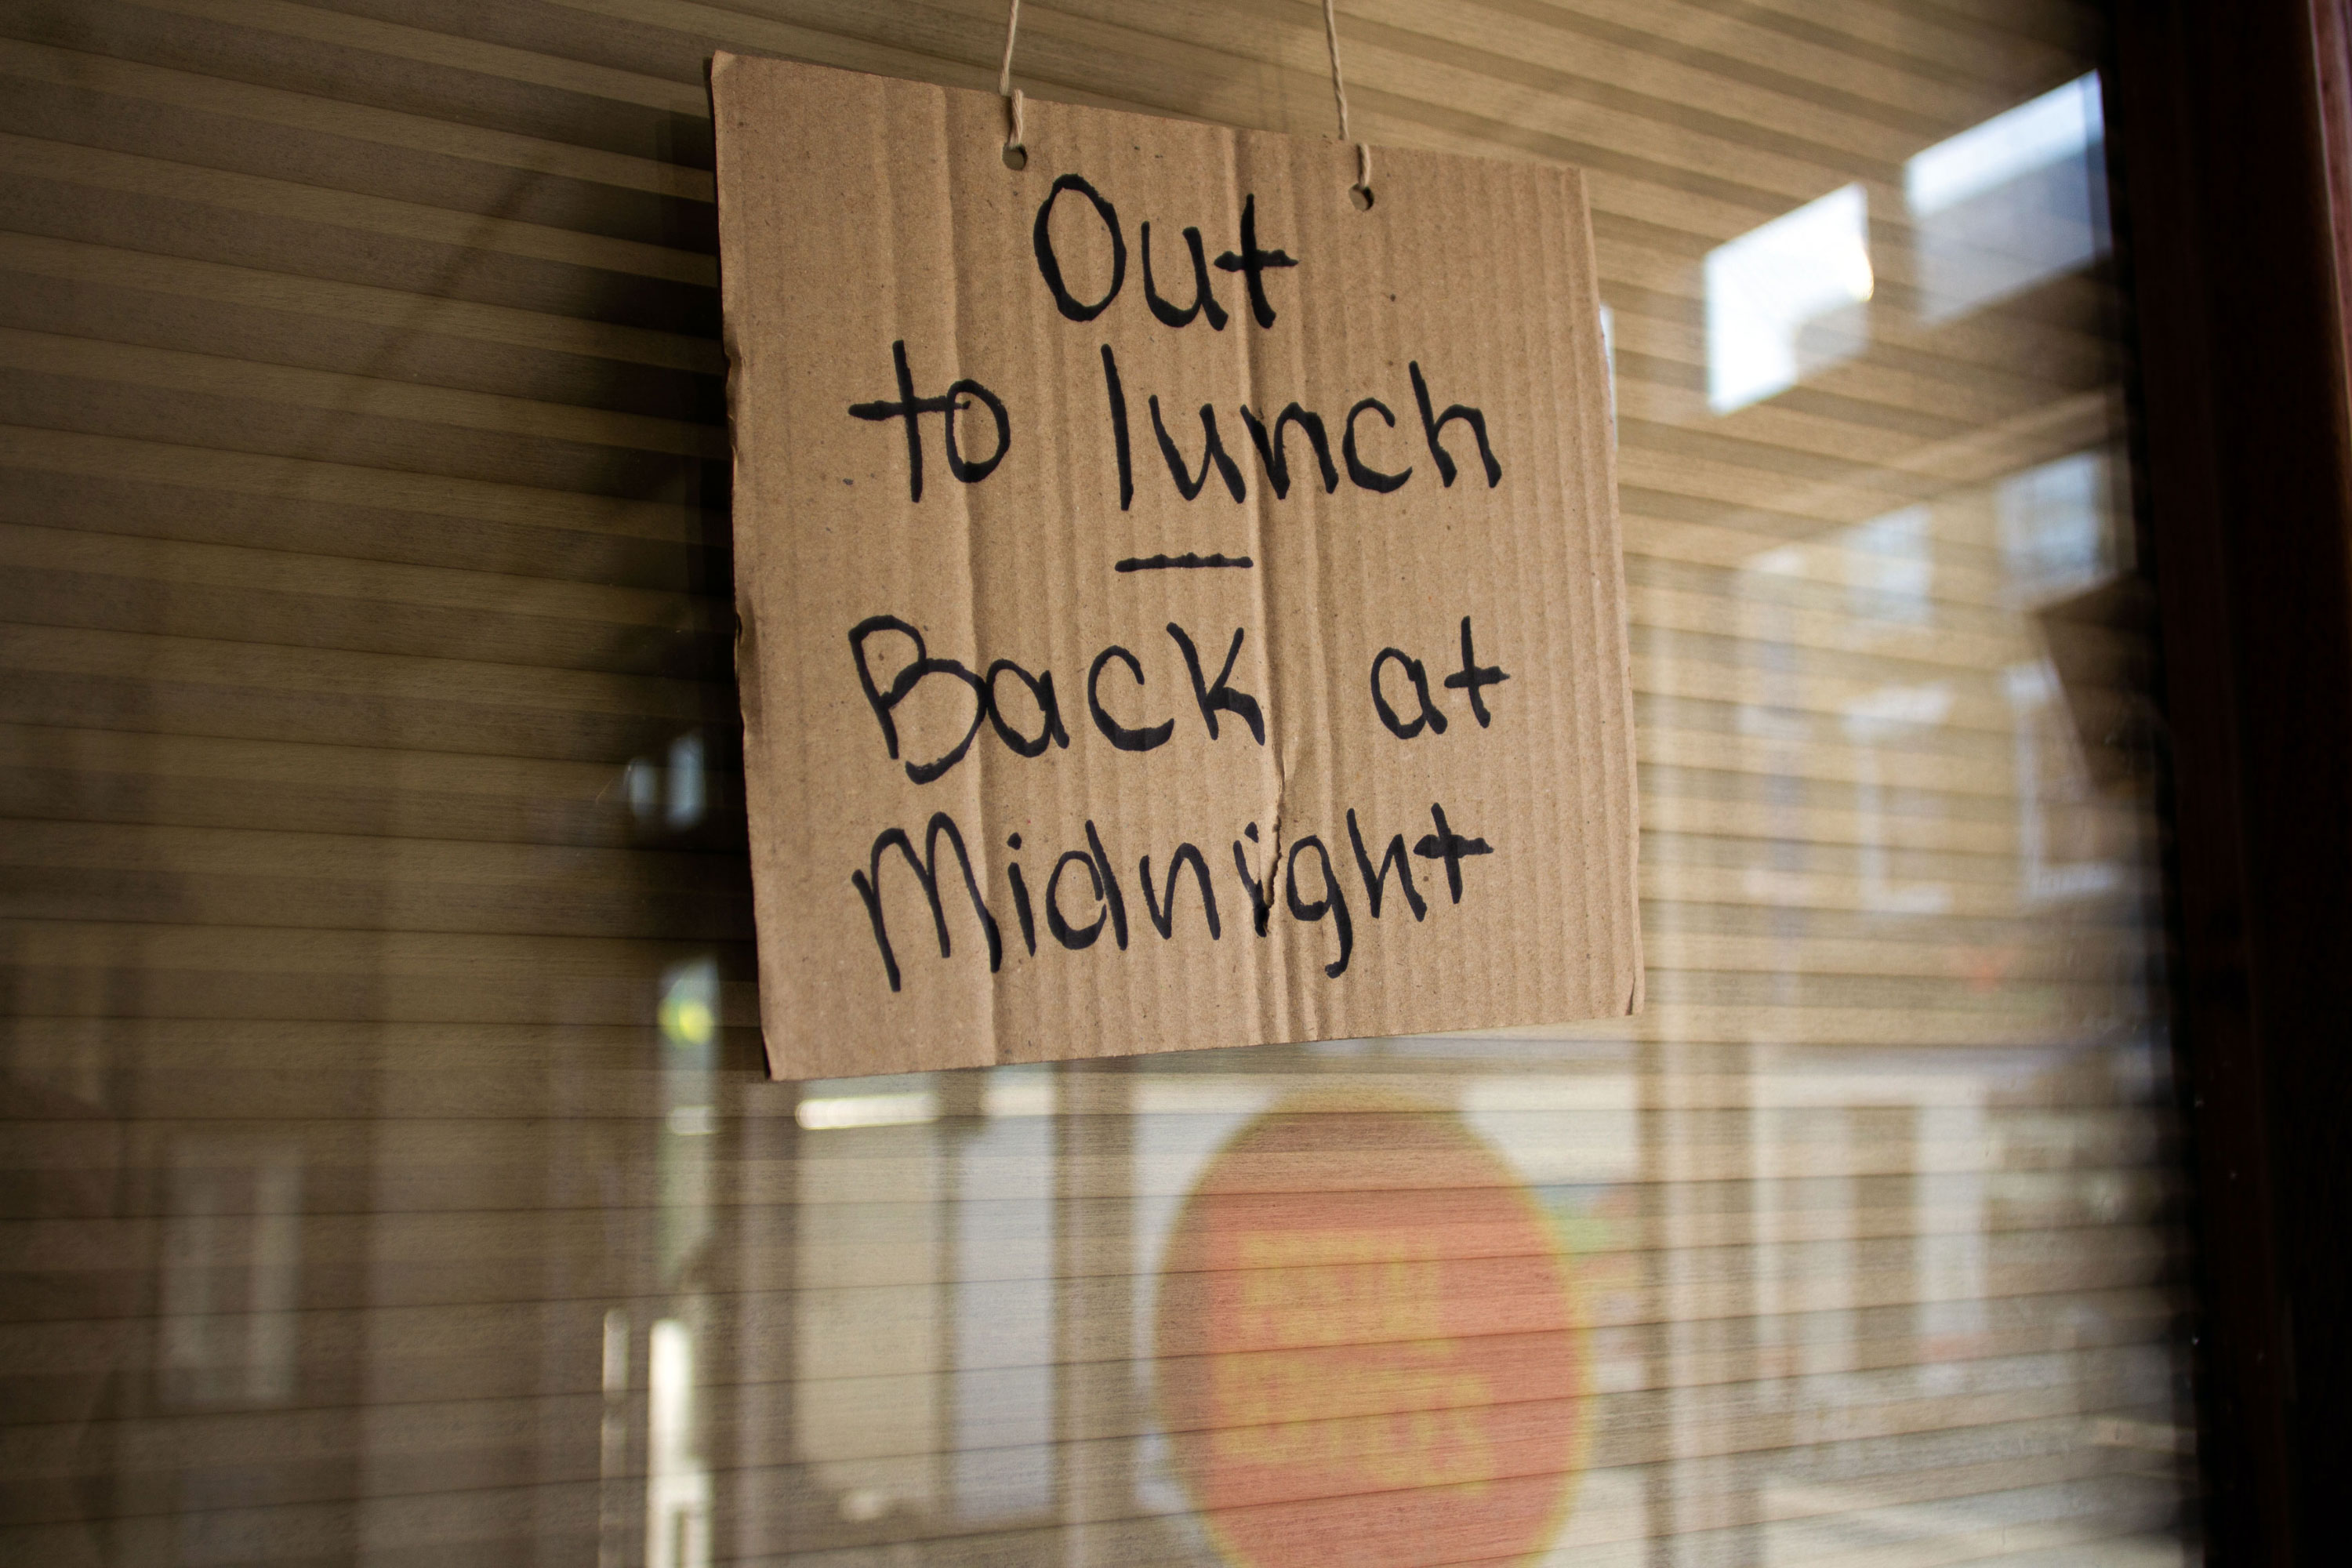 Out
to lunch
—
Back at
Midnight